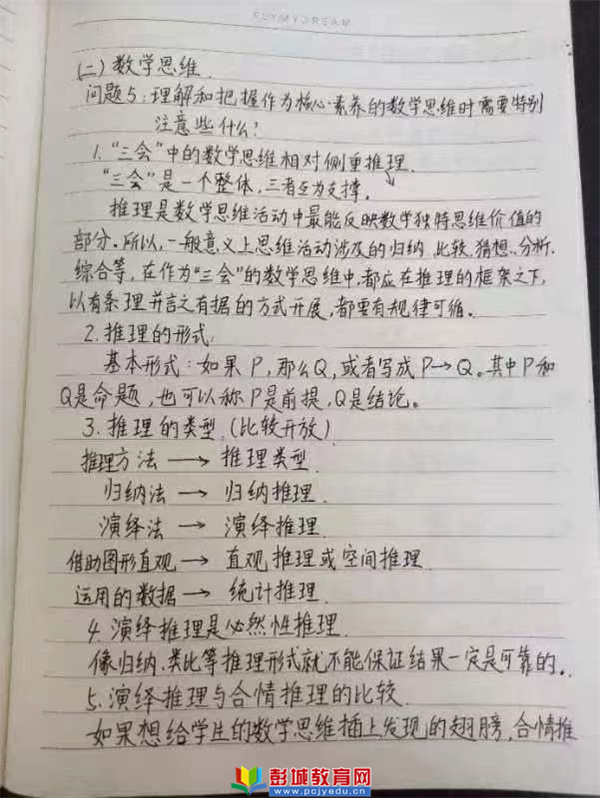 FLYMYDREAM
(二)数学思维.
问题5:理解和把握作为核心素养的数学思维时需要特别
注意些什么?
1."三会"中的数学思维相对侧重推理.
"三会"是一个整体,三者互为支撑。
推理是数学思维活动中最能反映数学独特思维价值的
部分。所以,一般意义上思维活动涉及的归纳.比较.猜想.分析.
综合等,在作为"三会"的数学思维中,都应在推理的框架之下,
以有条理并言之有据的方式开展,都要有规律可循。
2.推理的形式:
基本形式:如果P,那么Q,或者写成P→Q。其中P和
Q是命题,也可以称P是前提,Q是结论。
3.推理的类型.(比较开放)
推理方法 → 推理类型.
归纳法 → 归纳推理.
演绎法 → 演绎推理.
借助图形直观 → 直观推理或空间推理.
运用的数据 → 统计推理.
4.演绎推理是必然性推理.
像归纳、类比等推理形式就不能保证结果一定是可靠的。
5.演绎推理与合情推理的比较.
如果想给学生的数学思维插上发现的翅膀,合情推
彭城教育网
www.pcjyedu.cn